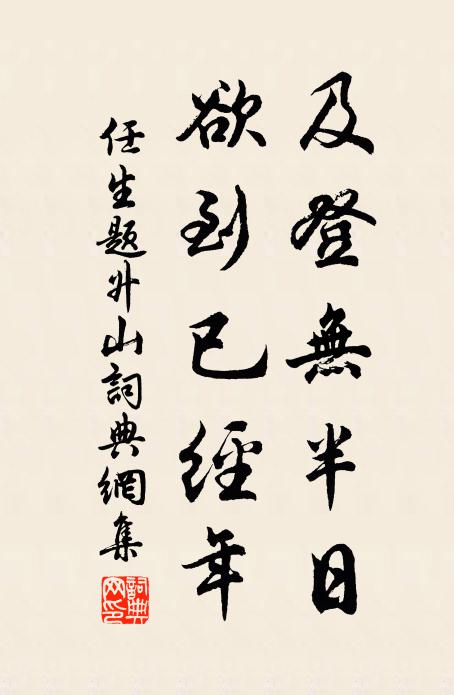 及登無半日
欲到已經年
任生題升山詞典網集
詞典網印